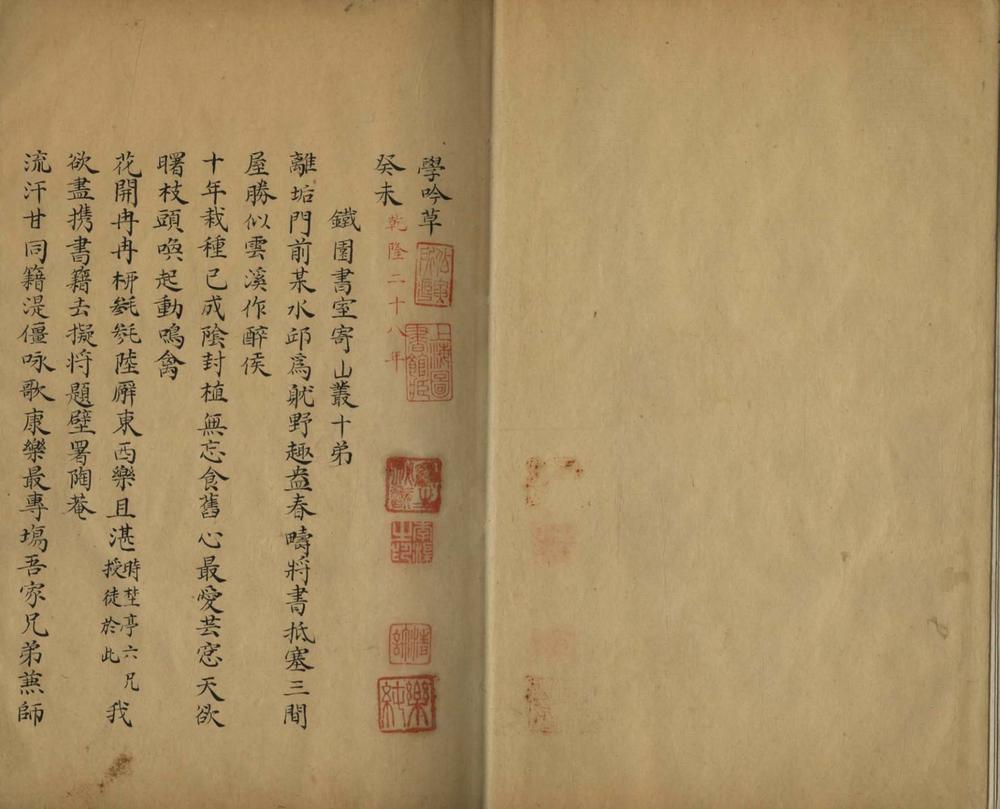 學吟草
癸未 乾隆二十八年
上海圖書館藏
鐵園書室寄山叢十弟
離垢門前某水邱爲躭野趣盎春疇將書抵塞三間
屋勝似雲溪作醉侯
十年栽種已成陰封植無忘食舊心最愛芸窓天欲
曙枝頭喚起動鳴禽
花開冉冉栁毿毿陸廨東西樂且湛時埜亭六兄授徒於此我
欲盡攜書籍去擬將題壁署陶菴
流汗甘同籍湜僵咏歌康樂最專塲吾家兄弟蕪師